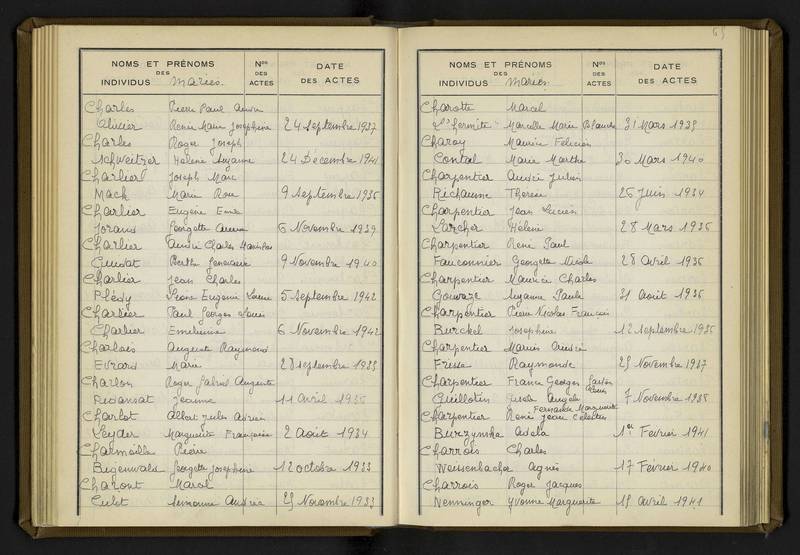 NOMS ET PRÉNOMS
DES
INDIVIDUS Mariés
Nos
DES
ACTES
DATE
DES ACTES
Charles Pierre Paul
Olivier Renée Marie Joséphine 24 Septembre 1937
Charles Roger Joseph
Schweitzer Hélène Suzanne 24 Décembre 1941
Charlier Joseph Marc
Mack Marie Rose 9 Septembre 1936
Charlier Eugène
Georgette 6 Novembre 1939
Charlier André Charles
Berthe 9 Novembre 1940
Charlier Jean Charles
Plédy Eugénie 5 Septembre 1942
Charlier Paul Georges Louis
Charlier 6 Novembre 1942
Auguste Raymond
Evrard Marie 28 Septembre 1933
Charlon Roger Auguste
Jeanne 11 Avril
Charlot Albert Jules Adrien
Leyder Marguerite Françoise 2 Août 1934
Charmoille Pierre
Georgette Joséphine 12 octobre 1933
Charont Marcel
Culot 23 Novembre 1933
65
NOMS ET PRÉNOMS
DES
INDIVIDUS Mariés
Nos
DES
ACTES
DATE
DES ACTES
Charotte Marcel
L'hermite Marcelle Marie Blanche 31 Mars 1933
Charoy Maurice Félicien
Contal Marie Marthe 30 Mars 1940
Charpentier André Julien
Richaume Thérèse 26 Juin 1934
Charpentier Jean Lucien
Larcher Hélène 28 Mars 1936
Charpentier René Paul
Fauconnier Georgette Nicole 28 Avril 1936
Charpentier Maurice Charles
Suzanne Paule 31 Août 1936
Charpentier Pierre Nicolas François
Burckel Joséphine 12 Septembre 1936
Charpentier Marius André
Frisse Raymonde 23 Novembre 1937
Charpentier France Georges Gaston
Guillotin Gisèle Angèle 7 Novembre 1938
Fernande Marguerite
Charpentier René Jean Célestin
Burczynska Adela 1er Février 1941
Charrois Charles
Weissenbacher Agnès 17 Février 1940
Charrois Roger Jacques
Nenninger Yvonne Marguerite 19 Avril 1941